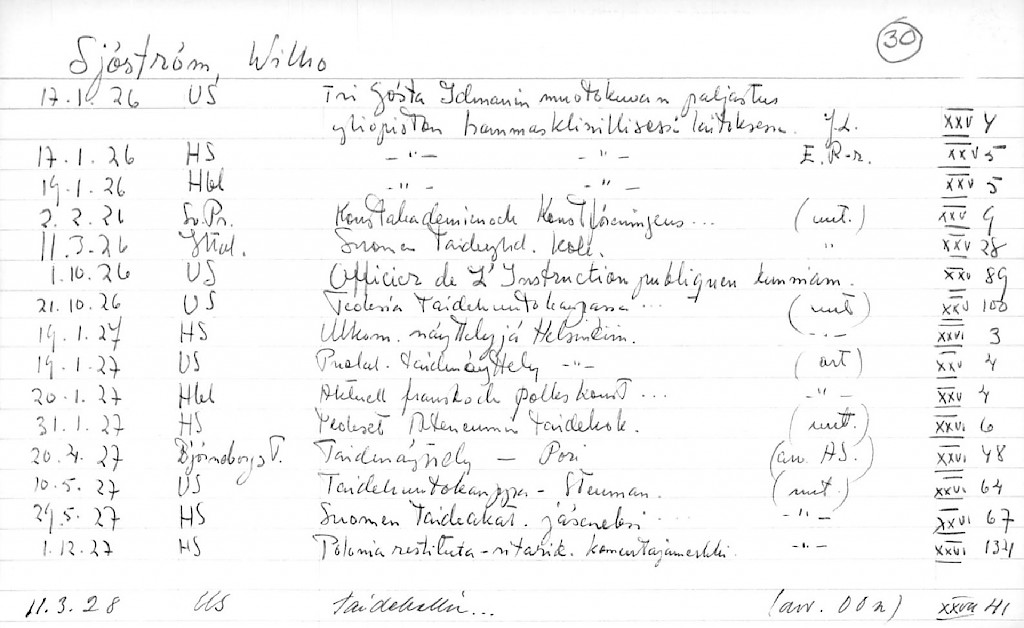 30
Sjöström, Wilho
17.1.26 US Tri Gösta Idmanin muotokuvan paljastus
yliopiston hammasklinillisessä laitoksessa. J.L. XXV 4
17.1.26 HS -"- -"- E.R-r. XXV 5
19.1.26 Hbl -"- -"- XXV 5
2.2.26 Sv.Pr. Konstakademien och Konstföreningens... (mut.) XXV 9
11.3.26 Suomen Taideyhd. kok. " XXV 28
1.10.26 US Officier de L'Instruction publiquen kunniam. XXV 89
21.10.26 US Teoksia Taidehuutokaupassa... (mut) XXV 100
19.1.27 HS Ulkom. näyttelyjä Helsinkiin. -"- XXVI 3
19.1.27 US Puolal. taidenäyttely -"- (art) XXV 4
20.1.27 Hbl Aktuell fransk och polsk konst... -"- XXV 4
31.1.27 HS Teokset Ateneumin taidekok. (mut.) XXVI 6
20.4.27 Björneborgs T. Taidenäyttely — Pori (arv. HS.) XXVI 48
10.5.27 US Taidehuutokauppa - Stenman. (mut.) XXVI 64
29.5.27 HS Suomen Taideakat. jäseneksi... -"- XXVI 67
1.12.27 HS Polonia restituta-ritarik. komentajamerkki. -"- XXVI 134
11.3.28 US Taidehalli... (arv. OOn) XXVII 41